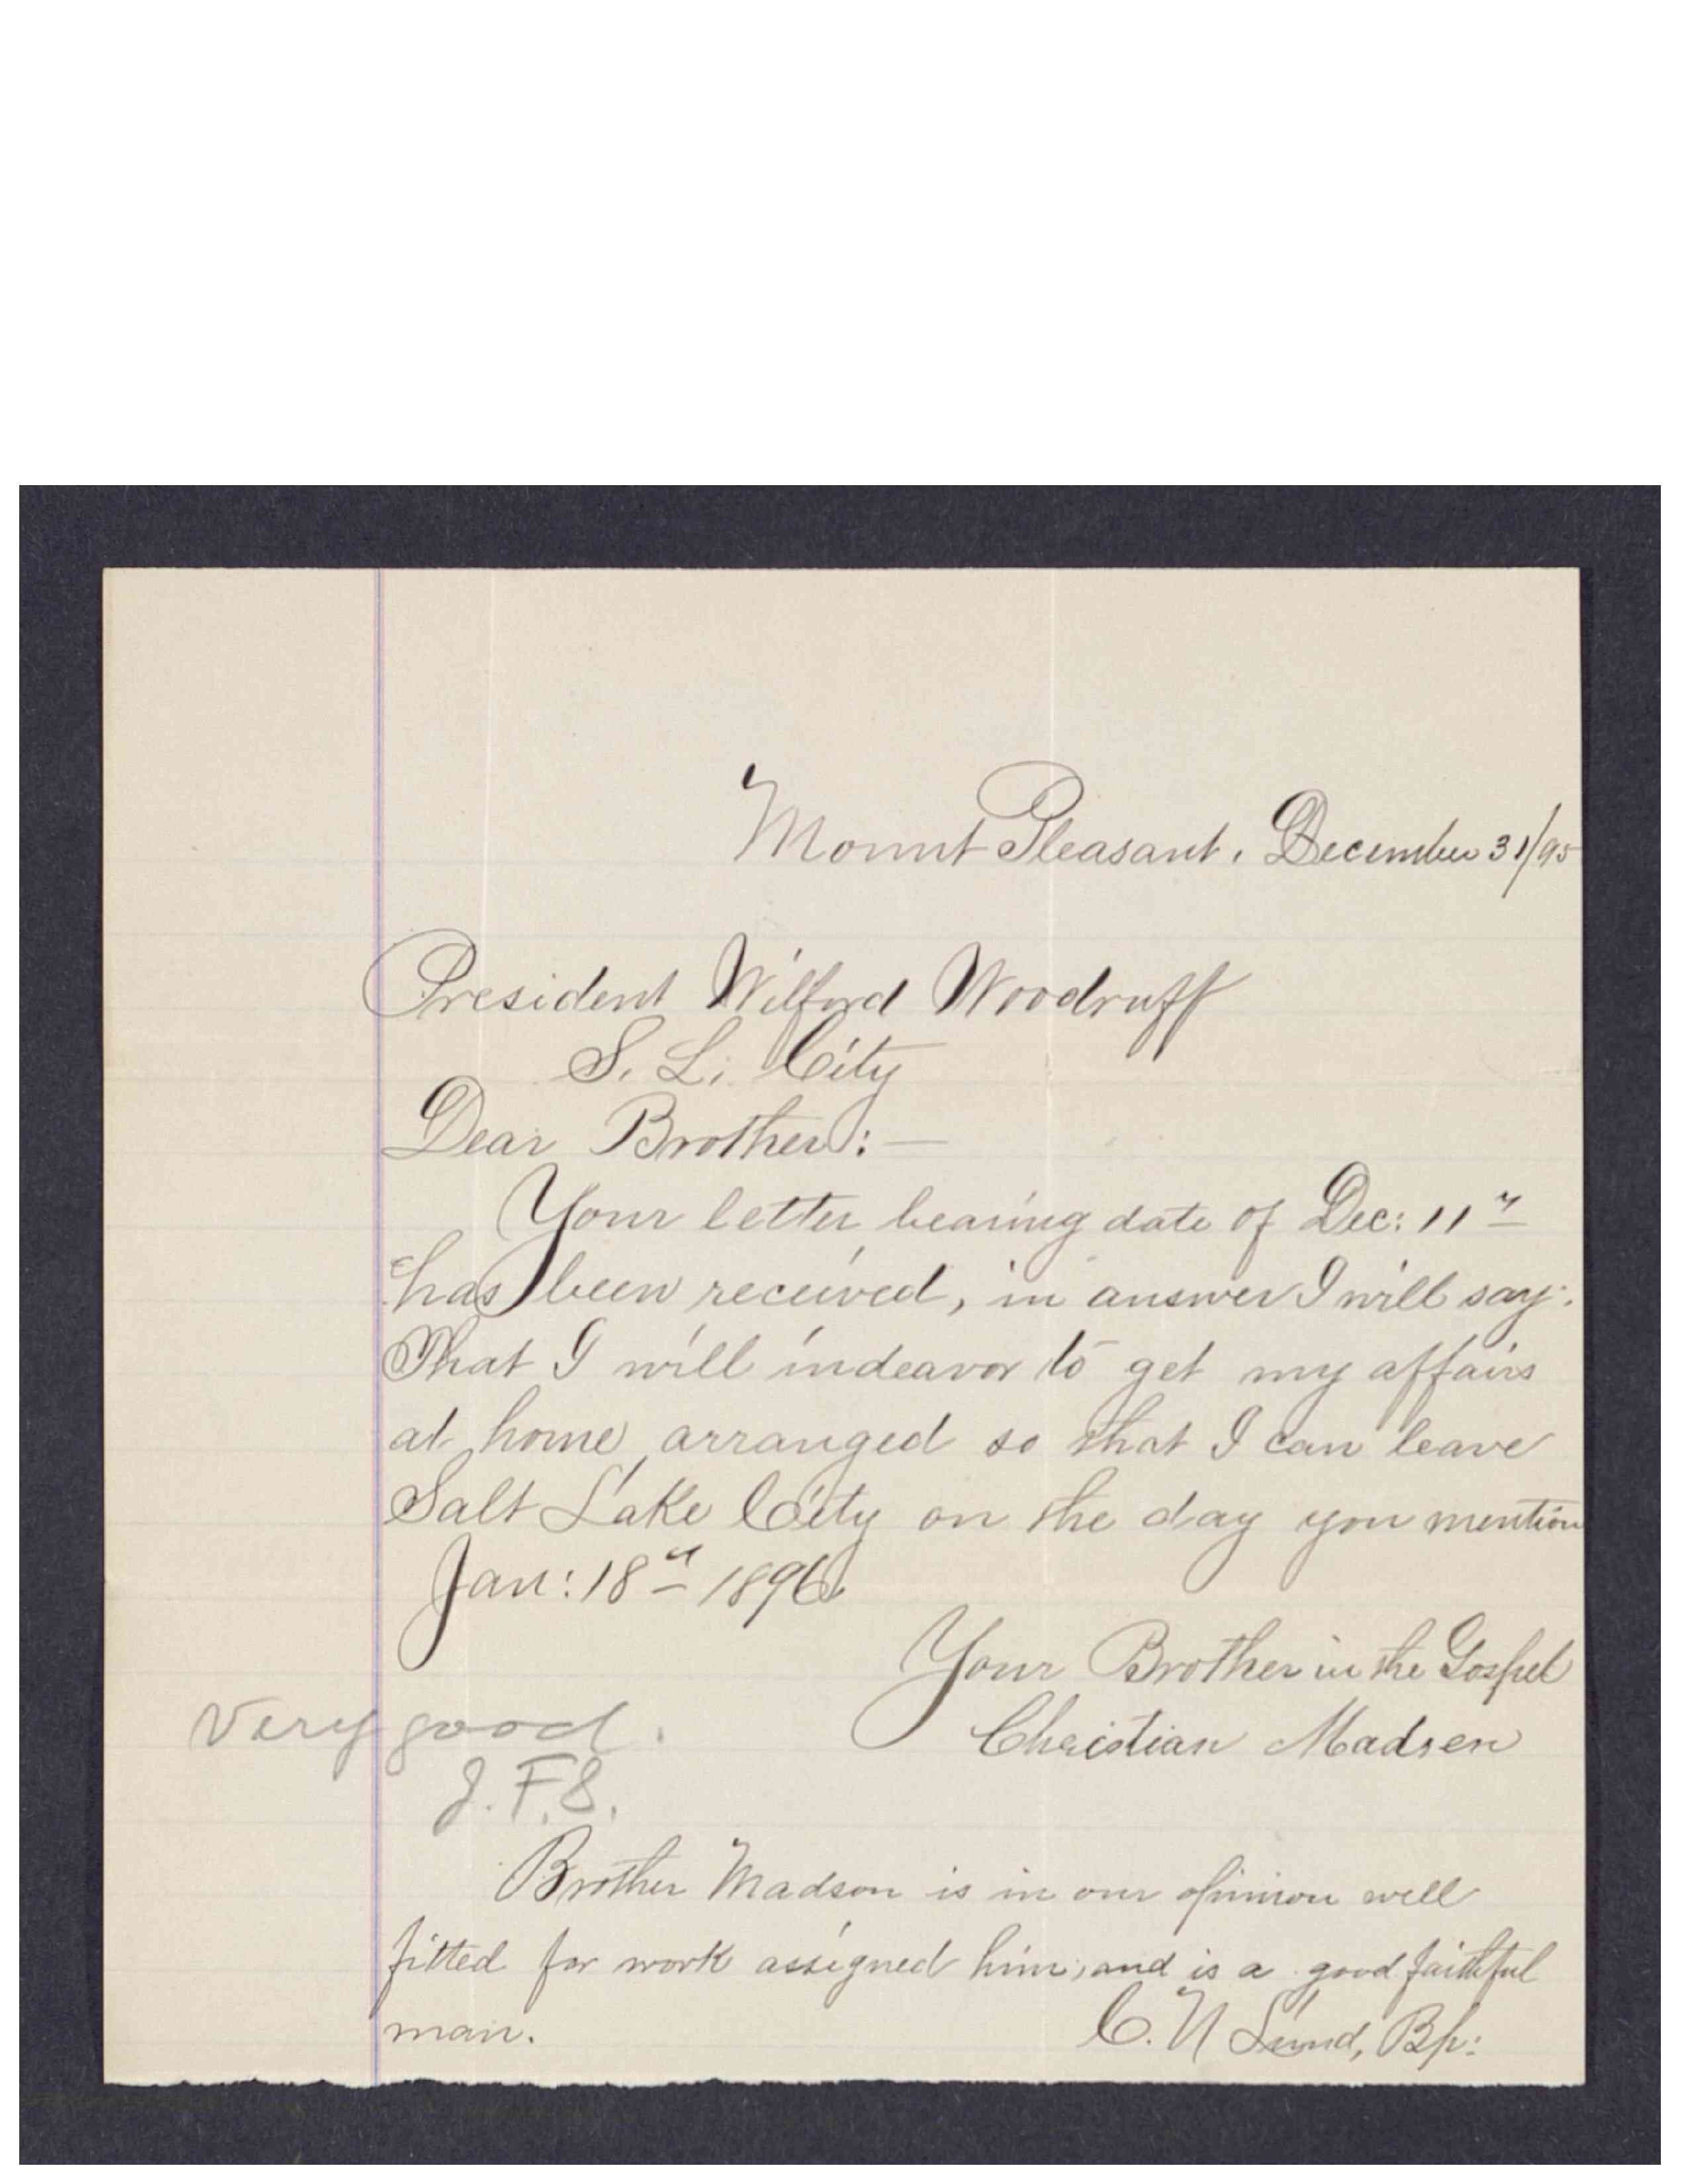 Mount Pleasant, December 31/95
President Wilford Woodruff
S. L. City
Dear Brother:—
Your letter bearing date of Dec: 11th
has been received, in answer I will say:
That I will indeavor to get my affairs
at home, arranged so that I can leave
Salt Lake City on the day you mention
Jan: 18th 1896
Your Brother in the Gospel
Christian Madsen
Very good.
J.F.S.
Brother Madson is in our opinion well
fitted for work assigned him, and is a good faithful
man.
C. N Lund, Bp: